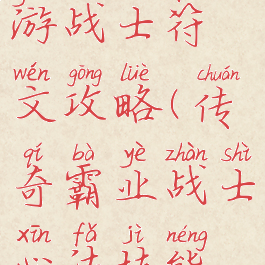 游战士符
wén gōng lüè chuán
文攻略(传
qí bà yè zhàn shì
奇霸业战士
xīn fǎ jì néng
心法技能